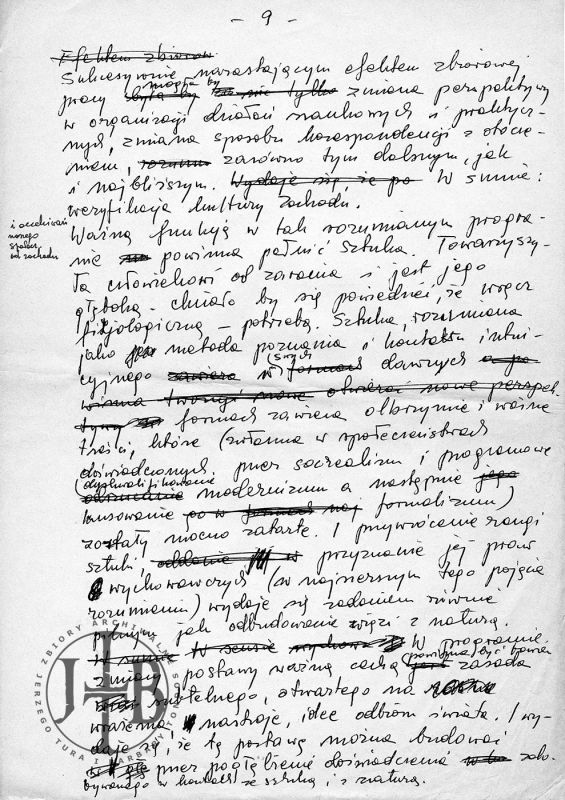 - 9 -
Efektem zbiorow
Sukcesywnie narastającym efektem zbiorowej
pracy byłaby mogła by być nie tylko zmiana perspektywy
w organizacji działań naukowych i praktycz-
nych, zmiana sposobu korespondencji z otocze-
niem, zarówno tym dalszym, jak
i najbliższym. Wydaje się, że po W sumie:
weryfikacja kultury zachodu.
i oczekiwań
nowego
na zachodu
Ważną funkcję w tak rozumianym progra-
mie powinna pełnić sztuka. Towarzyszy-
ła człowiekowi od zarania i jest jego
głęboką - chciało by się powiedzieć, że wręcz
fizjologiczną - potrzebą. Sztuka, rozumiana
jako metoda poznania i kontaktu intui-
cyjnego zawiera w swych formach dawnych a po-
winna tworzyć nowe otwierać nowe perspek-
tywy formach zawiera olbrzymie i ważne
treści, które (zwłaszcza w społeczeństwach
doświadczonych przez socrealizm i programowe
(dyskwalifikowanie
modernizmu a następnie jego
lansowanie formalizmu)
zostały mocno zatarte. I przywrócenie rangi
sztuki oddanie w przyznanie jej praw
wychowawczych (w najszerszym tego pojęcia
rozumieniu) wydaje się zadaniem równie
pilnym jak odbudowanie więzi z naturą.
W sumie W sensie wychowa W programie
zmiany postawy ważną cechą jest powinna być bowiem zasada
subtelnego, otwartego na
wrażenia, nastroje, idee odbioru świata. I wy-
daje się, że tę postawę można budować
przez pogłębienie doświadczenia zdo-
bywanego w kontakcie ze sztuką i z naturą.
ZBIORY ARCHIWALNE
JERZEGO
TURA I BARBARY
JHB